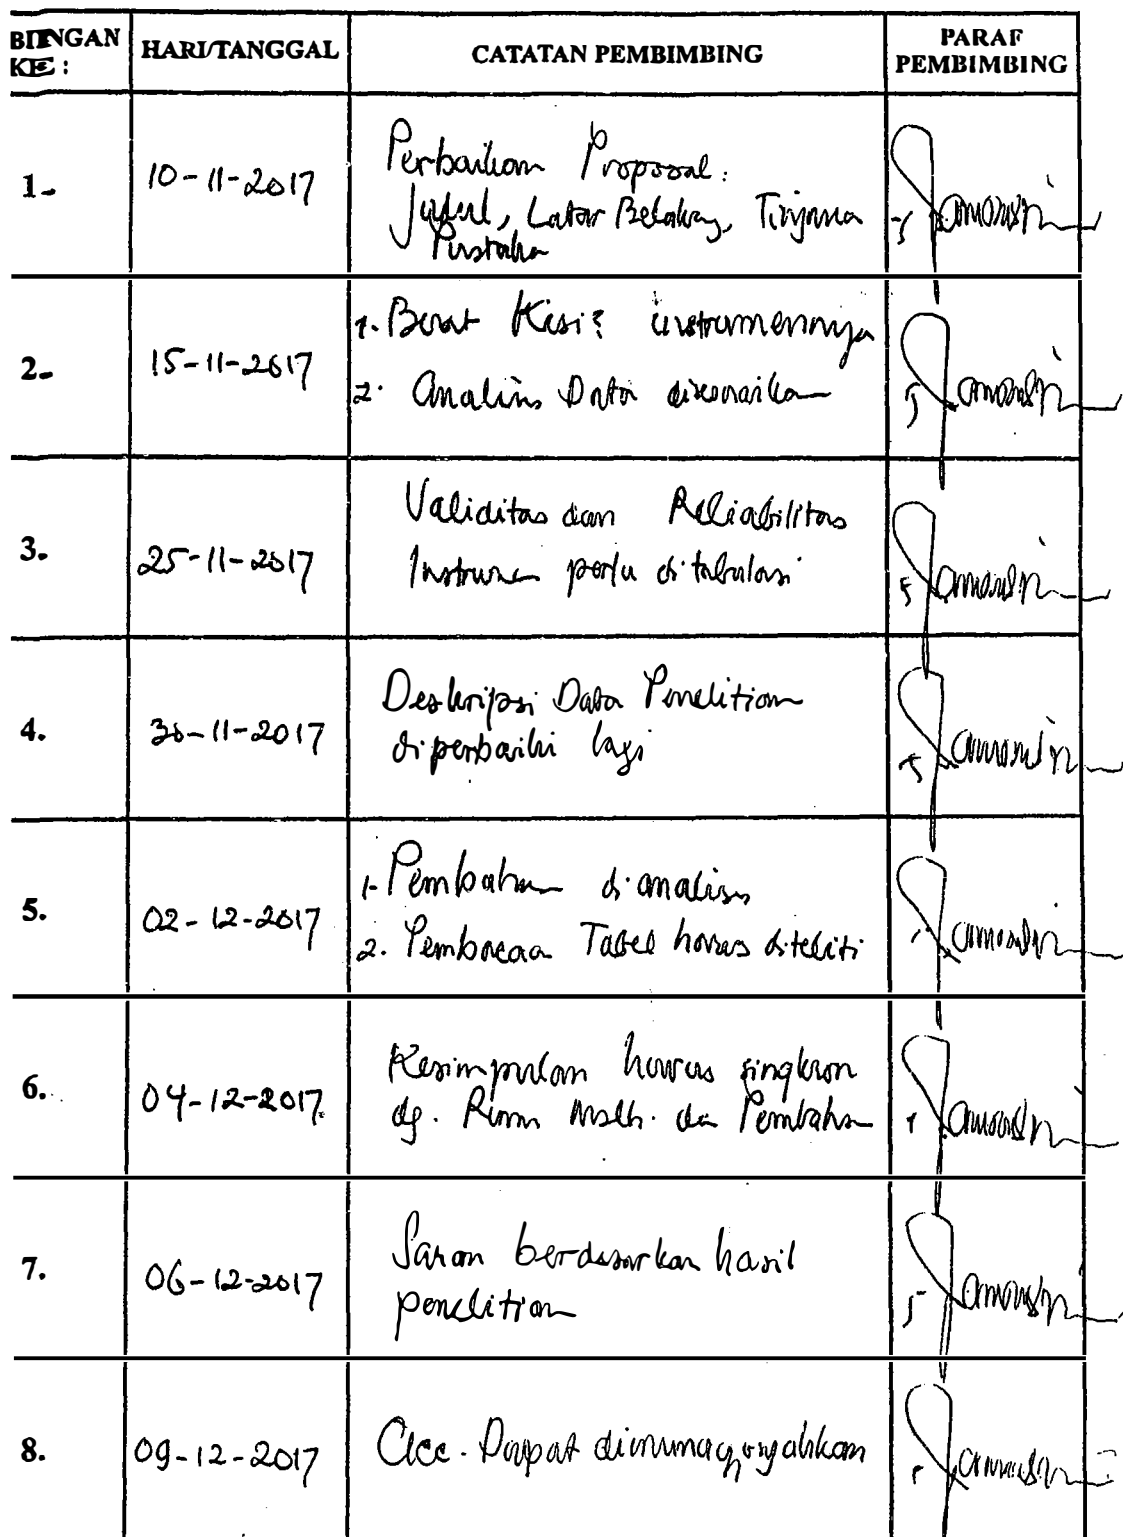 BINGAN KE : HARI/TANGGAL CATATAN PEMBIMBING PARAF PEMBIMBING
1. 10-11-2017 Perbaikan Proposal :
Judul, Latar Belakang, Tinjauan
Pustaka
2. 15-11-2017 1. Buat Kisi2 instrumennya
2. Analisis Data disesuaikan
3. 25-11-2017 Validitas dan Reliabilitas
Instrumen perlu ditabulasi
4. 30-11-2017 Deskripsi Data Penelitian
diperbaiki lagi
5. 02-12-2017 1. Pembahasan dianalisis
2. Pembacaan Tabel harus diteliti
6. 04-12-2017 Kesimpulan harus singkron
dg. Rumn Mslh. dan Pembahasan
7. 06-12-2017 Saran berdasarkan hasil
penelitian
8. 09-12-2017 Acc. Dapat dimunaqosyahkan